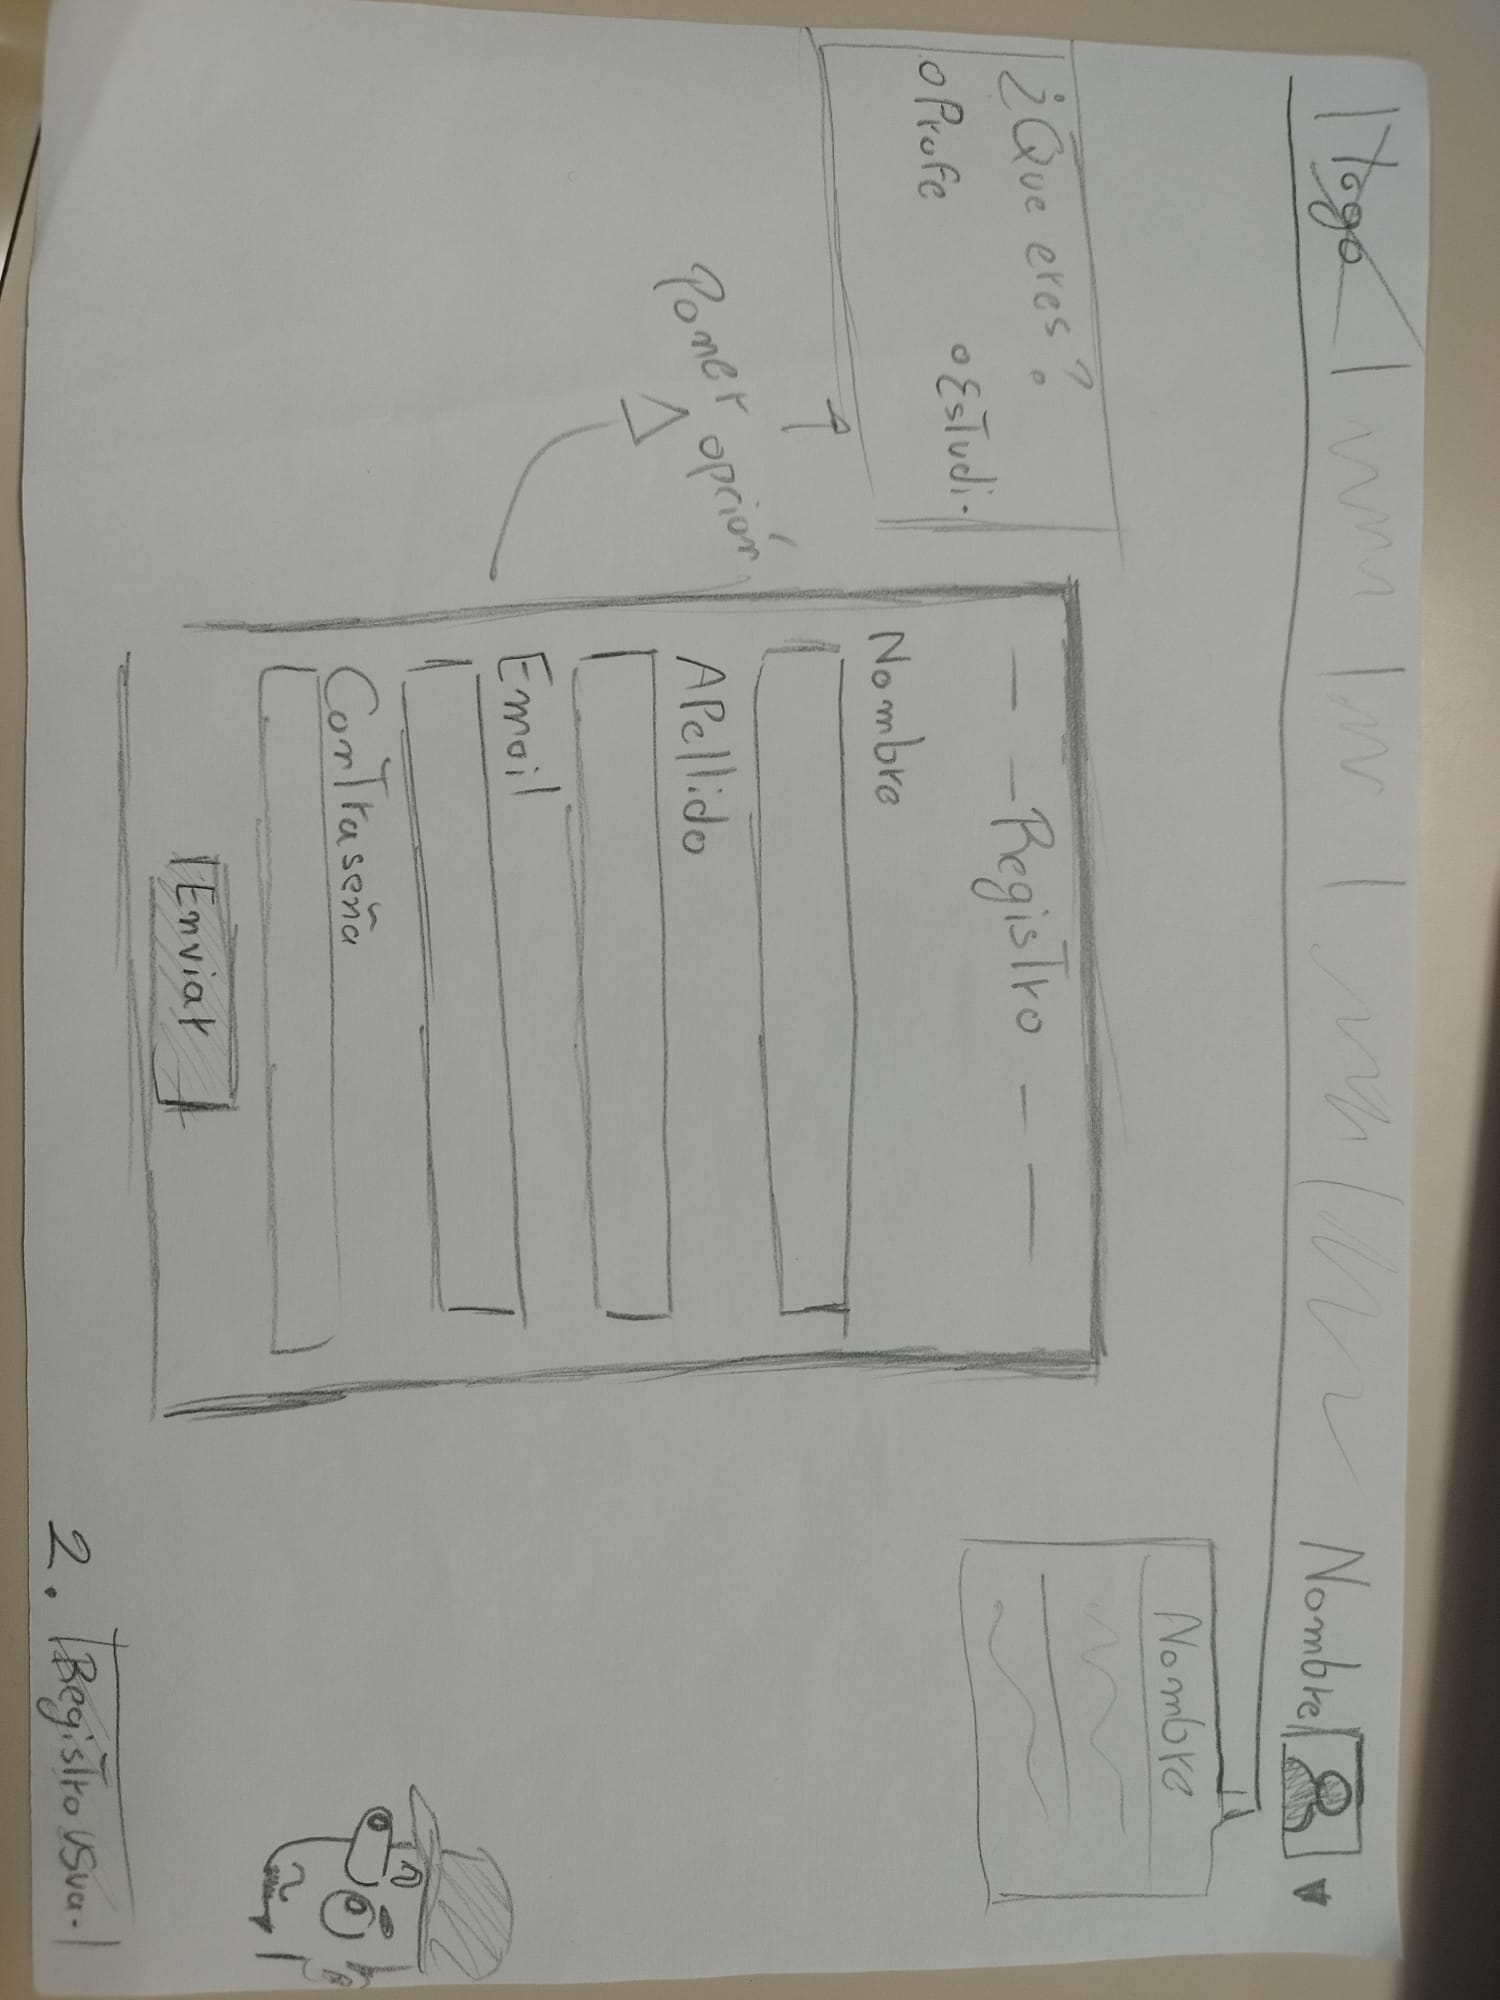 logo
Nombre
Nombre
¿Que eres?
Profe
Estudi.
Poner opción
Registro
Nombre
APellido
Email
Contraseña
Enviar
2. Registro Usua.